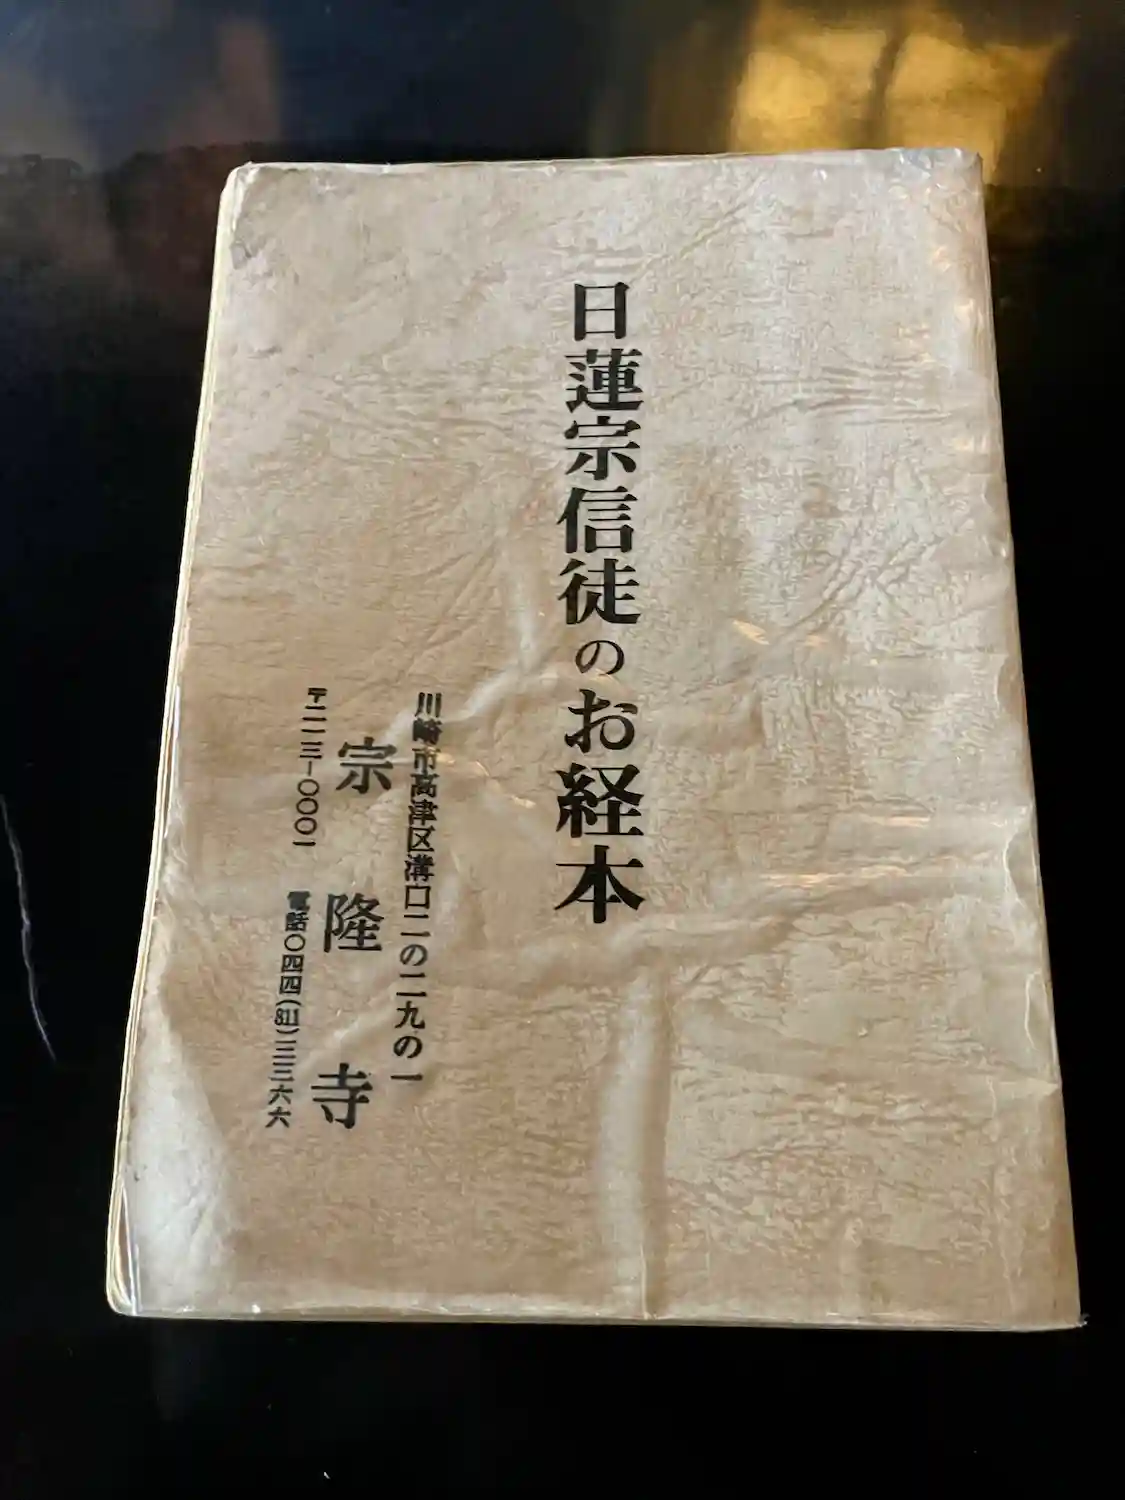 日蓮宗信徒のお経本
川崎市高津区溝口二の二九の一
宗隆寺
〒二一三-〇〇〇一
電話〇四四(811)三三六六